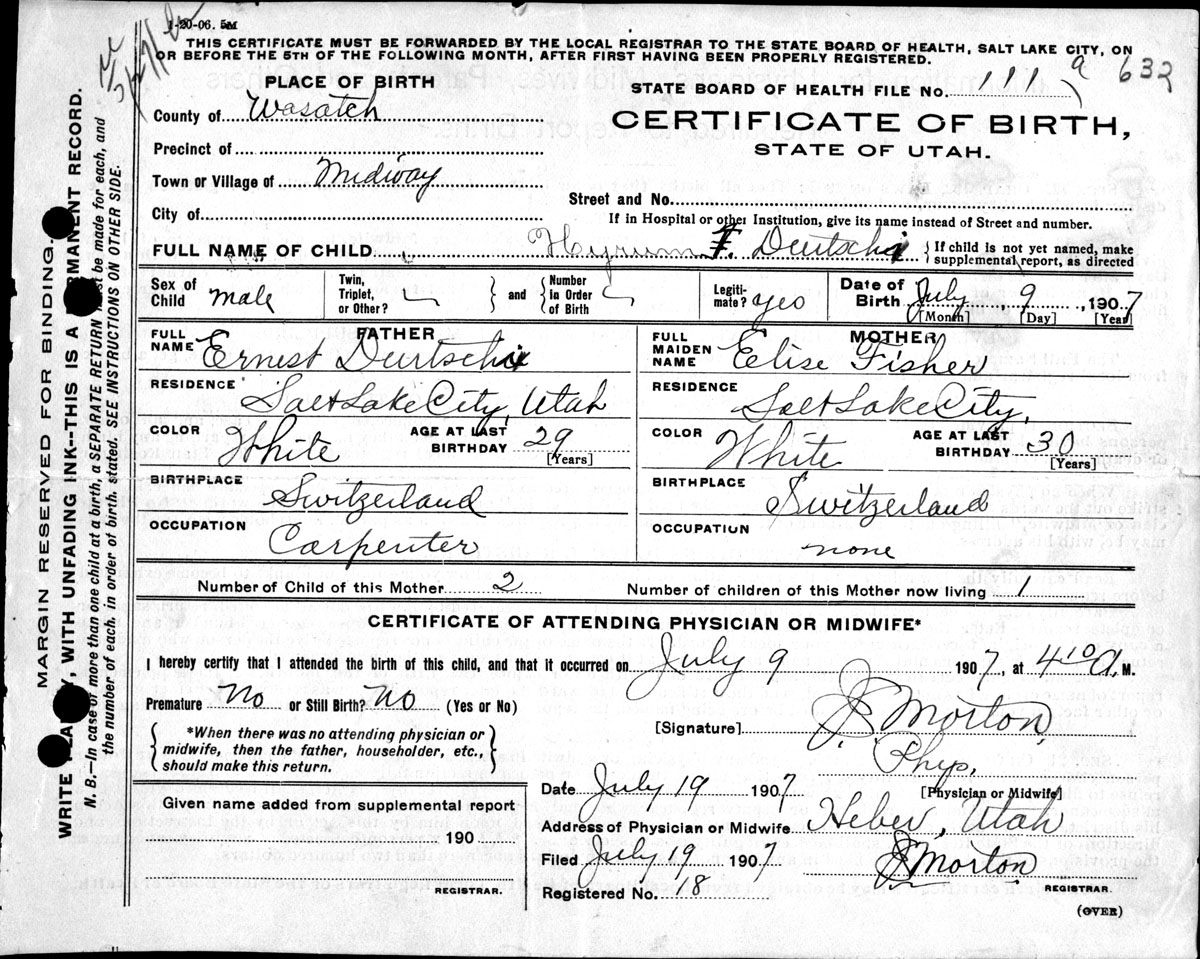 1-20-06. 5M
THIS CERTIFICATE MUST BE FORWARDED BY THE LOCAL REGISTRAR TO THE STATE BOARD OF HEALTH, SALT LAKE CITY, ON
OR BEFORE THE 5TH OF THE FOLLOWING MONTH, AFTER FIRST HAVING BEEN PROPERLY REGISTERED.
PLACE OF BIRTH
STATE BOARD OF HEALTH FILE No. 111 9 632
County of Wasatch
CERTIFICATE OF BIRTH,
STATE OF UTAH.
Precinct of
Town or Village of Midway
Street and No.
City of
If in Hospital or other Institution, give its name instead of Street and number.
FULL NAME OF CHILD Hyrum F. Deutschi { If child is not yet named, make
supplemental report, as directed
Sex of Child male
Twin, Triplet, or Other? } and { Number in Order of Birth
Legitimate? yes
Date of Birth July 9, 1907
[Month] [Day] [Year]
FATHER
FULL NAME Ernest Deutschi
MOTHER
FULL MAIDEN NAME Elise Fisher
RESIDENCE Salt Lake City, Utah
RESIDENCE Salt Lake City,
COLOR White AGE AT LAST BIRTHDAY 29 [Years]
COLOR White AGE AT LAST BIRTHDAY 30 [Years]
BIRTHPLACE Switzerland
BIRTHPLACE Switzerland
OCCUPATION Carpenter
OCCUPATION none
Number of Child of this Mother 2 Number of children of this Mother now living 1
CERTIFICATE OF ATTENDING PHYSICIAN OR MIDWIFE*
I hereby certify that I attended the birth of this child, and that it occurred on July 9 1907, at 4 10 A. M.
Premature No or Still Birth? No (Yes or No)
[Signature] J. Morton,
{ *When there was no attending physician or
midwife, then the father, householder, etc.,
should make this return. }
Phys.
[Physician or Midwife]
Date July 19 1907
Given name added from supplemental report
190
REGISTRAR.
Address of Physician or Midwife Heber, Utah
Filed July 19 1907 J. Morton
REGISTRAR.
Registered No. 18
(OVER)
MARGIN RESERVED FOR BINDING.
WRITE , WITH UNFADING INK--THIS IS A RECORD.
N. B.—In case of more than one child at a birth, a SEPARATE RETURN must be made for each, and
the number of each, in order of birth, stated. SEE INSTRUCTIONS ON OTHER SIDE.